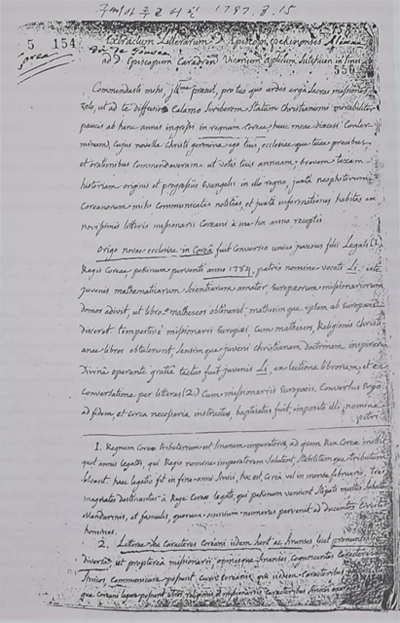 구베아 주교 서한 1797.8.15
5 154
Extractum Litterarum D. Episcopi Pekinensis
ad D. Episcopum Caradren Vicarium aplicum Sutchuen in Sinis
550
Commendasti mihi, Illme praesul, pro tuo quo ardes erga sacras missiones
zelo, ut ad te diffusiori calamo scriberem statum christianismi mirabiliter
paucis ab hinc annis ingressi in regnum coreae huic meae dioecesi conter-
minum, cujus novella christi germina ego tuis, ecclesiaeque tuae precibus
et orationibus commendaveram ut votis tuis annuam, brevem texam
historiam originis et progressus Evangelii in illo regno, juxta neophitorum
Coreanorum mihi communicatas notitias, et juxta informationes habitas in
novissimis litteris missionarii Coreani a me hoc anno receptis
origo novae ecclesiae in Corea fuit conversio unius juvenis filii Legati (1.
Regis Coreae pekinum pervenit anno 1784, patris nomine vocati Li, iste
juvenis mathematicarum scientiarum amator Europaeorum missionariorum
domos adivit, ut libros matheseos obtineret, mathesimque ipsam ab Europaeis
disceret tempestive missionarii Europaei cum matheseos, Religionis Christi-
anae libros obtulerunt, sensimque juveni christianam doctrinam inspirarunt
Divina operante gratia tactus fuit juvenis Li, ex lectione librorum, et ex
conversatione per litteras (2.) cum missionariis Europaeis. Conversus ergo
ad fidem, et circa necessaria instructus, baptisatus fuit, imposito illi nomine
petri
1. Regnum Coreae tributarium est sinarum imperatoris, ad quem Rex Coreae mittit
quot annis legatos, qui Regis nomine imperatorem salutent, stabilitumque tributum
solvant. haec legatio fit in fine anni Sinici, hoc est, circa vel in mense februarii, tres
magnates destinantur a Rege Coreae legati, qui pekinum veniunt stipati multis
Mandarinis, et famulis, quorum omnium numerus pervenit ad ducentos circiter
homines.
2. Litterae seu Caracteres Coreani iidem sunt ac Sinenses licet pronuntiatio
diversa, ut propterea missionarii, omnesque Sinenses, cognoscentes caracteres
Sinicos, communicare possunt cum coreanis, ope eorumdem caracterum